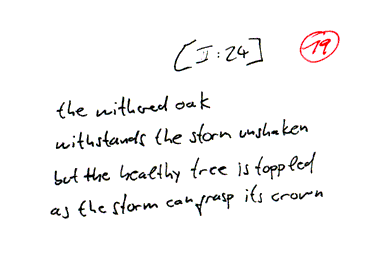 [I:24] 19
the withered oak
withstands the storm unshaken
but the healthy tree is toppled
as the storm can grasp its crown